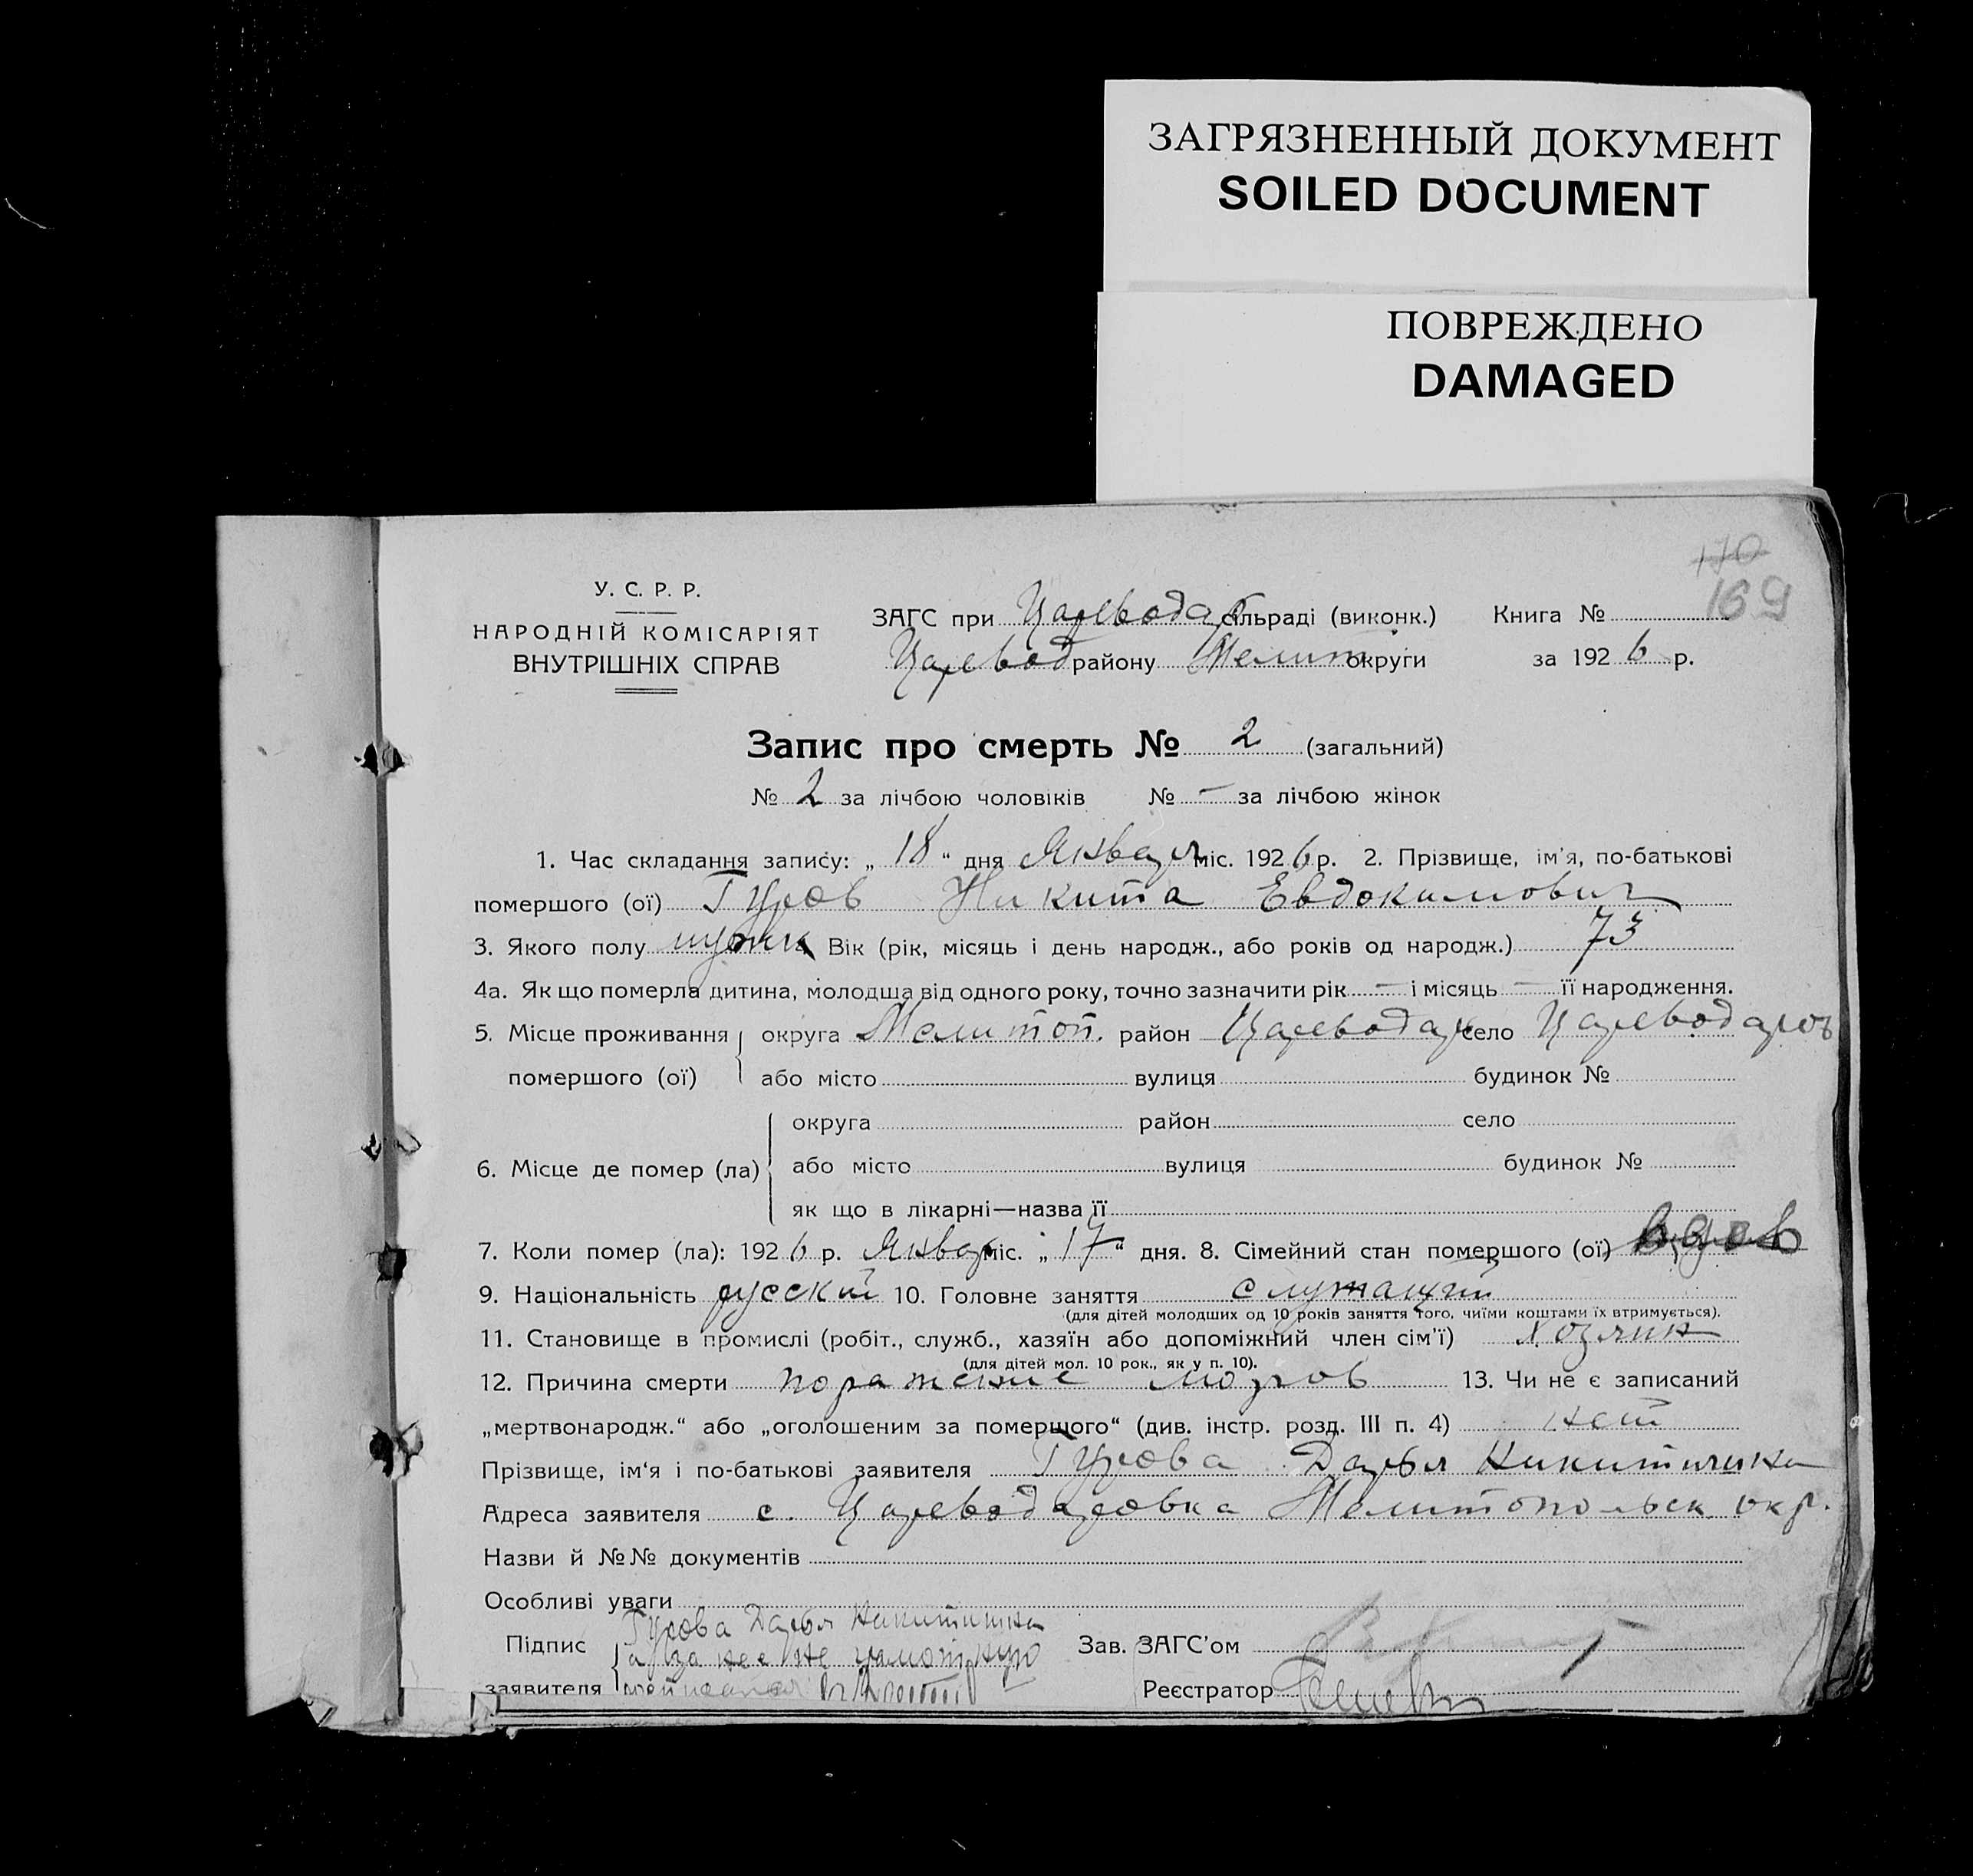 ЗАГРЯЗНЕННЫЙ ДОКУМЕНТ
SOILED DOCUMENT
ПОВРЕЖДЕНО
DAMAGED
170
169
У. С. Р. Р.
НАРОДНІЙ КОМІСАРІЯТ
ВНУТРІШНІХ СПРАВ
ЗАГС при Царевода сільраді (виконк.) Книга №
Царевод району Мелит округи за 1926 р.
Запис про смерть № 2 (загальний)
№ 2 за лічбою чоловіків № — за лічбою жінок
1. Час складання запису: „ 18 “ дня Января міс. 1926 р. 2. Прізвище, ім'я, по-батькові
помершого (ої) Гуров Никита Евдокимович
3. Якого полу мужк Вік (рік, місяць і день народж., або років од народж.) 73
4а. Як що померла дитина, молодша від одного року, точно зазначити рік — і місяць — її народження.
5. Місце проживання округа Мелитоп. район Цареводар село Цареводаров
помершого (ої) або місто вулиця будинок №
округа район село
6. Місце де помер (ла) або місто вулиця будинок №
як що в лікарні—назва її
7. Коли помер (ла): 1926 р. Январ міс. „ 17 “ дня. 8. Сімейний стан помершого (ої) вдов
9. Національність русский 10. Головне заняття служащий
(для дітей молодших од 10 років заняття того, чиїми коштами їх втримується).
11. Становище в промислі (робіт., служб., хазяїн або допоміжний член сім'ї) хозяин
(для дітей мол. 10 рок., як у п. 10).
12. Причина смерти поражение мозгов 13. Чи не є записаний
„мертвонародж.“ або „оголошеним за помершого“ (див. інстр. розд. III п. 4) нет
Прізвище, ім'я і по-батькові заявителя Гурова Дарья Никитична
Адреса заявителя с. Цареводаровка Мелитопольск. окр.
Назви й №№ документів
Особливі уваги
Гурова Дарья Никитична
Підпис а за нее не грамотную Зав. ЗАГС'ом
заявителя Реєстратор